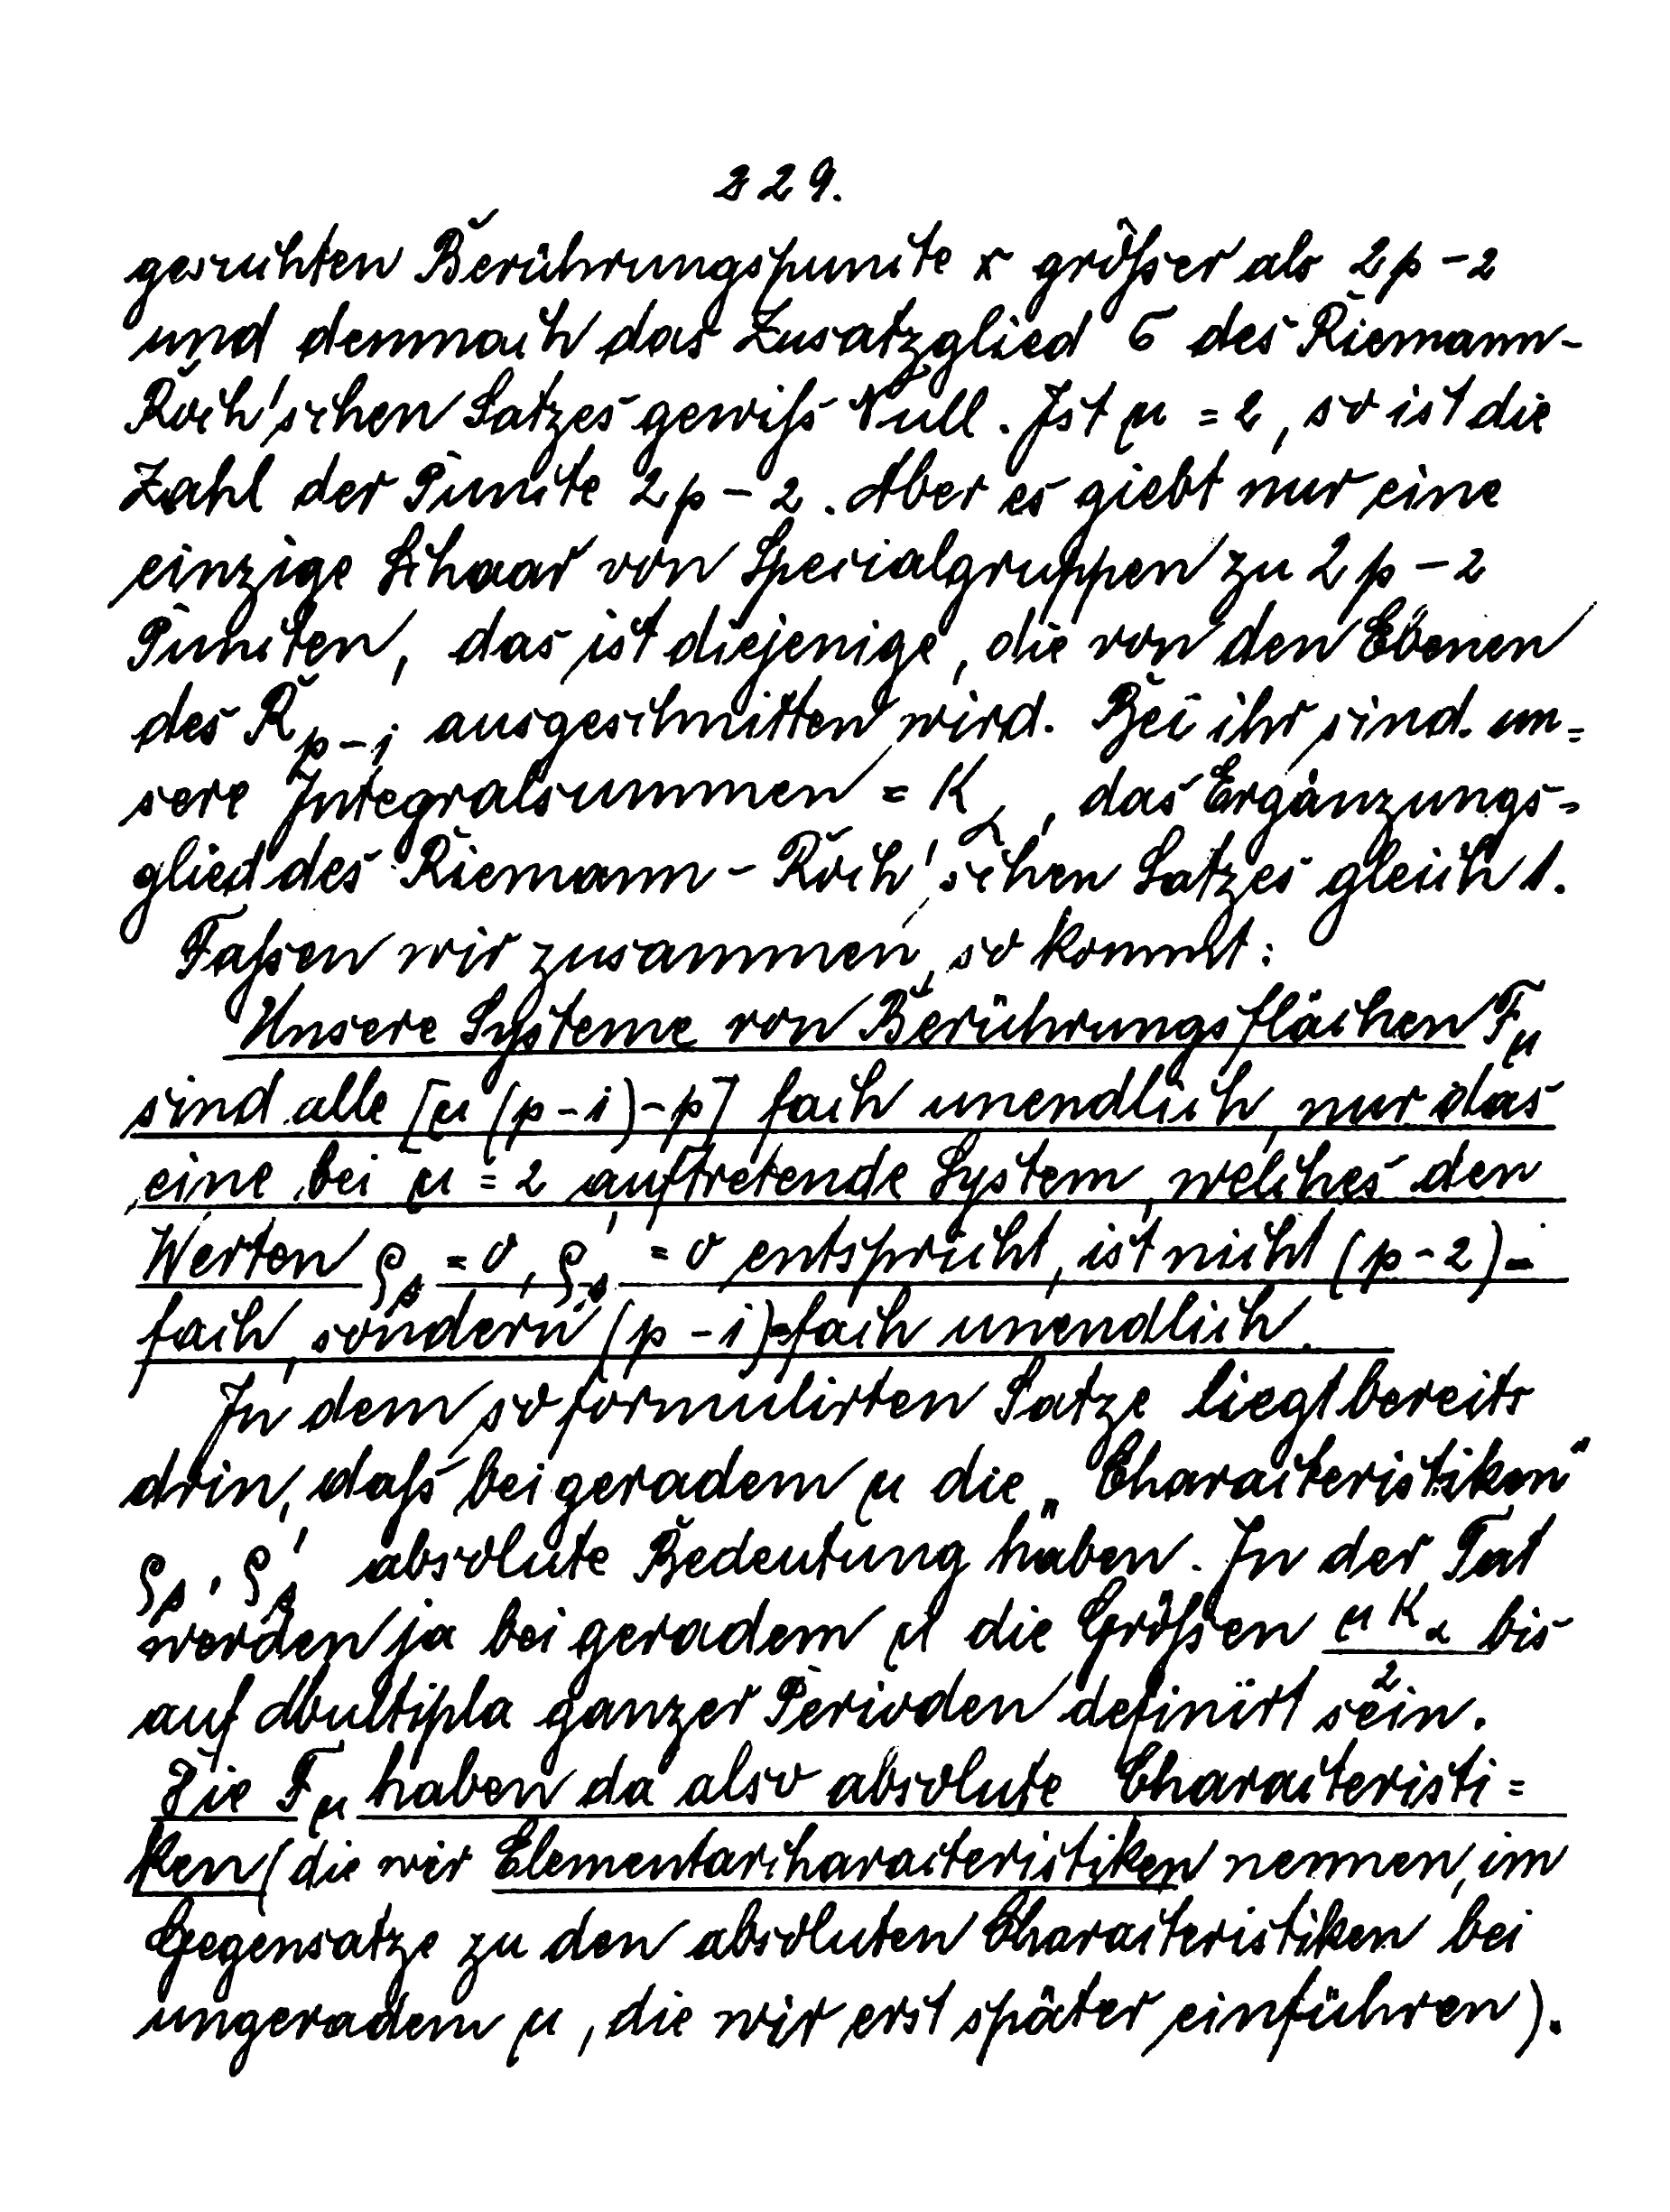 229.
gesuchten Berührungspuncte x größer als 2p-2
und demnach das Zusatzglied σ des Riemann-
Roch'schen Satzes gewiß Null. Ist μ = 2, so ist die
Zahl der Puncte 2p-2. Aber es giebt nur eine
einzige Schaar von Specialgruppen zu 2p-2
Puncten, das ist diejenige, die von den Ebenen
des R_{p-1} ausgeschnitten wird. Bei ihr sind un=
sere Integralsummen = K_α, das Ergänzungs=
glied des Riemann-Roch'schen Satzes gleich 1.
Faßen wir zusammen, so kommt:
Unsere Systeme von Berührungsflächen F_μ
sind alle [μ(p-1)-p] fach unendlich, nur das
eine bei μ = 2 auftretende System, welches den
Werten ρ_s = 0, ρ_s' = 0 entspricht, ist nicht (p-2)-
fach, sondern (p-1)=fach unendlich.
In dem so formulirten Satze liegt bereits
drin, daß bei geradem μ die „Characteristiken"
ρ_s, ρ_s' absolute Bedeutung haben. In der Tat
werden ja bei geradem μ die Größen μK_α/2 bis
auf Multipla ganzer Perioden definirt sein.
Die F_μ haben da also absolute Characteristi=
ken (die wir Elementarcharacteristiken nennen, im
Gegensatze zu den absoluten Characteristiken bei
ungeradem μ, die wir erst später einführen).